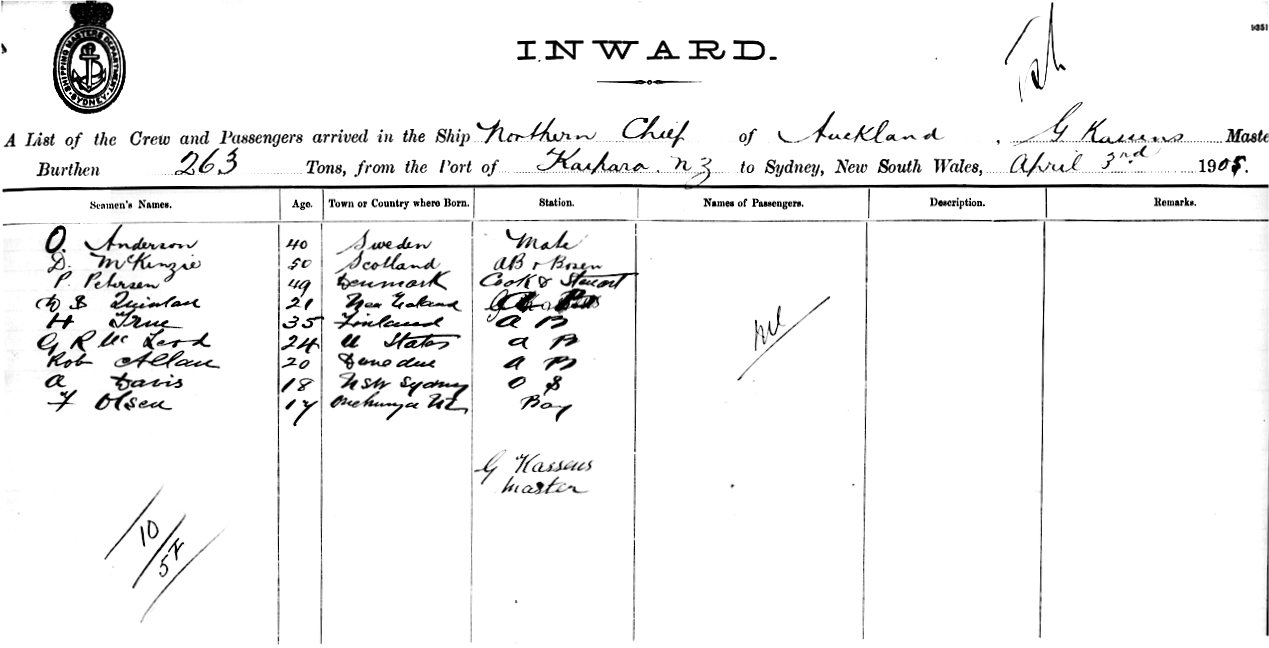 SHIPPING MASTERS DEPARTMENT
SYDNEY
INWARD.
A List of the Crew and Passengers arrived in the Ship Northern Chief of Auckland, G Kassens Maste
Burthen 263 Tons, from the Port of Kaipara. NZ to Sydney, New South Wales, April 3rd 1905.
Seamen's Names. Age. Town or Country where Born. Station. Names of Passengers. Description. Remarks.
O. Anderson 40 Sweden Mate
D. McKenzie 50 Scotland AB & Bosen
P. Petersen 49 Denmark Cook & Steward
Quinlan 21 New Zealand A B
H True 35 Finland A B
G R McLeod 24 U States A B
Rob Allan 20 Dunedin A B
A Davis 18 NSW Sydney O S
F Olsen 17 Onehunga NZ Boy
nil
G Kassens
Master
10